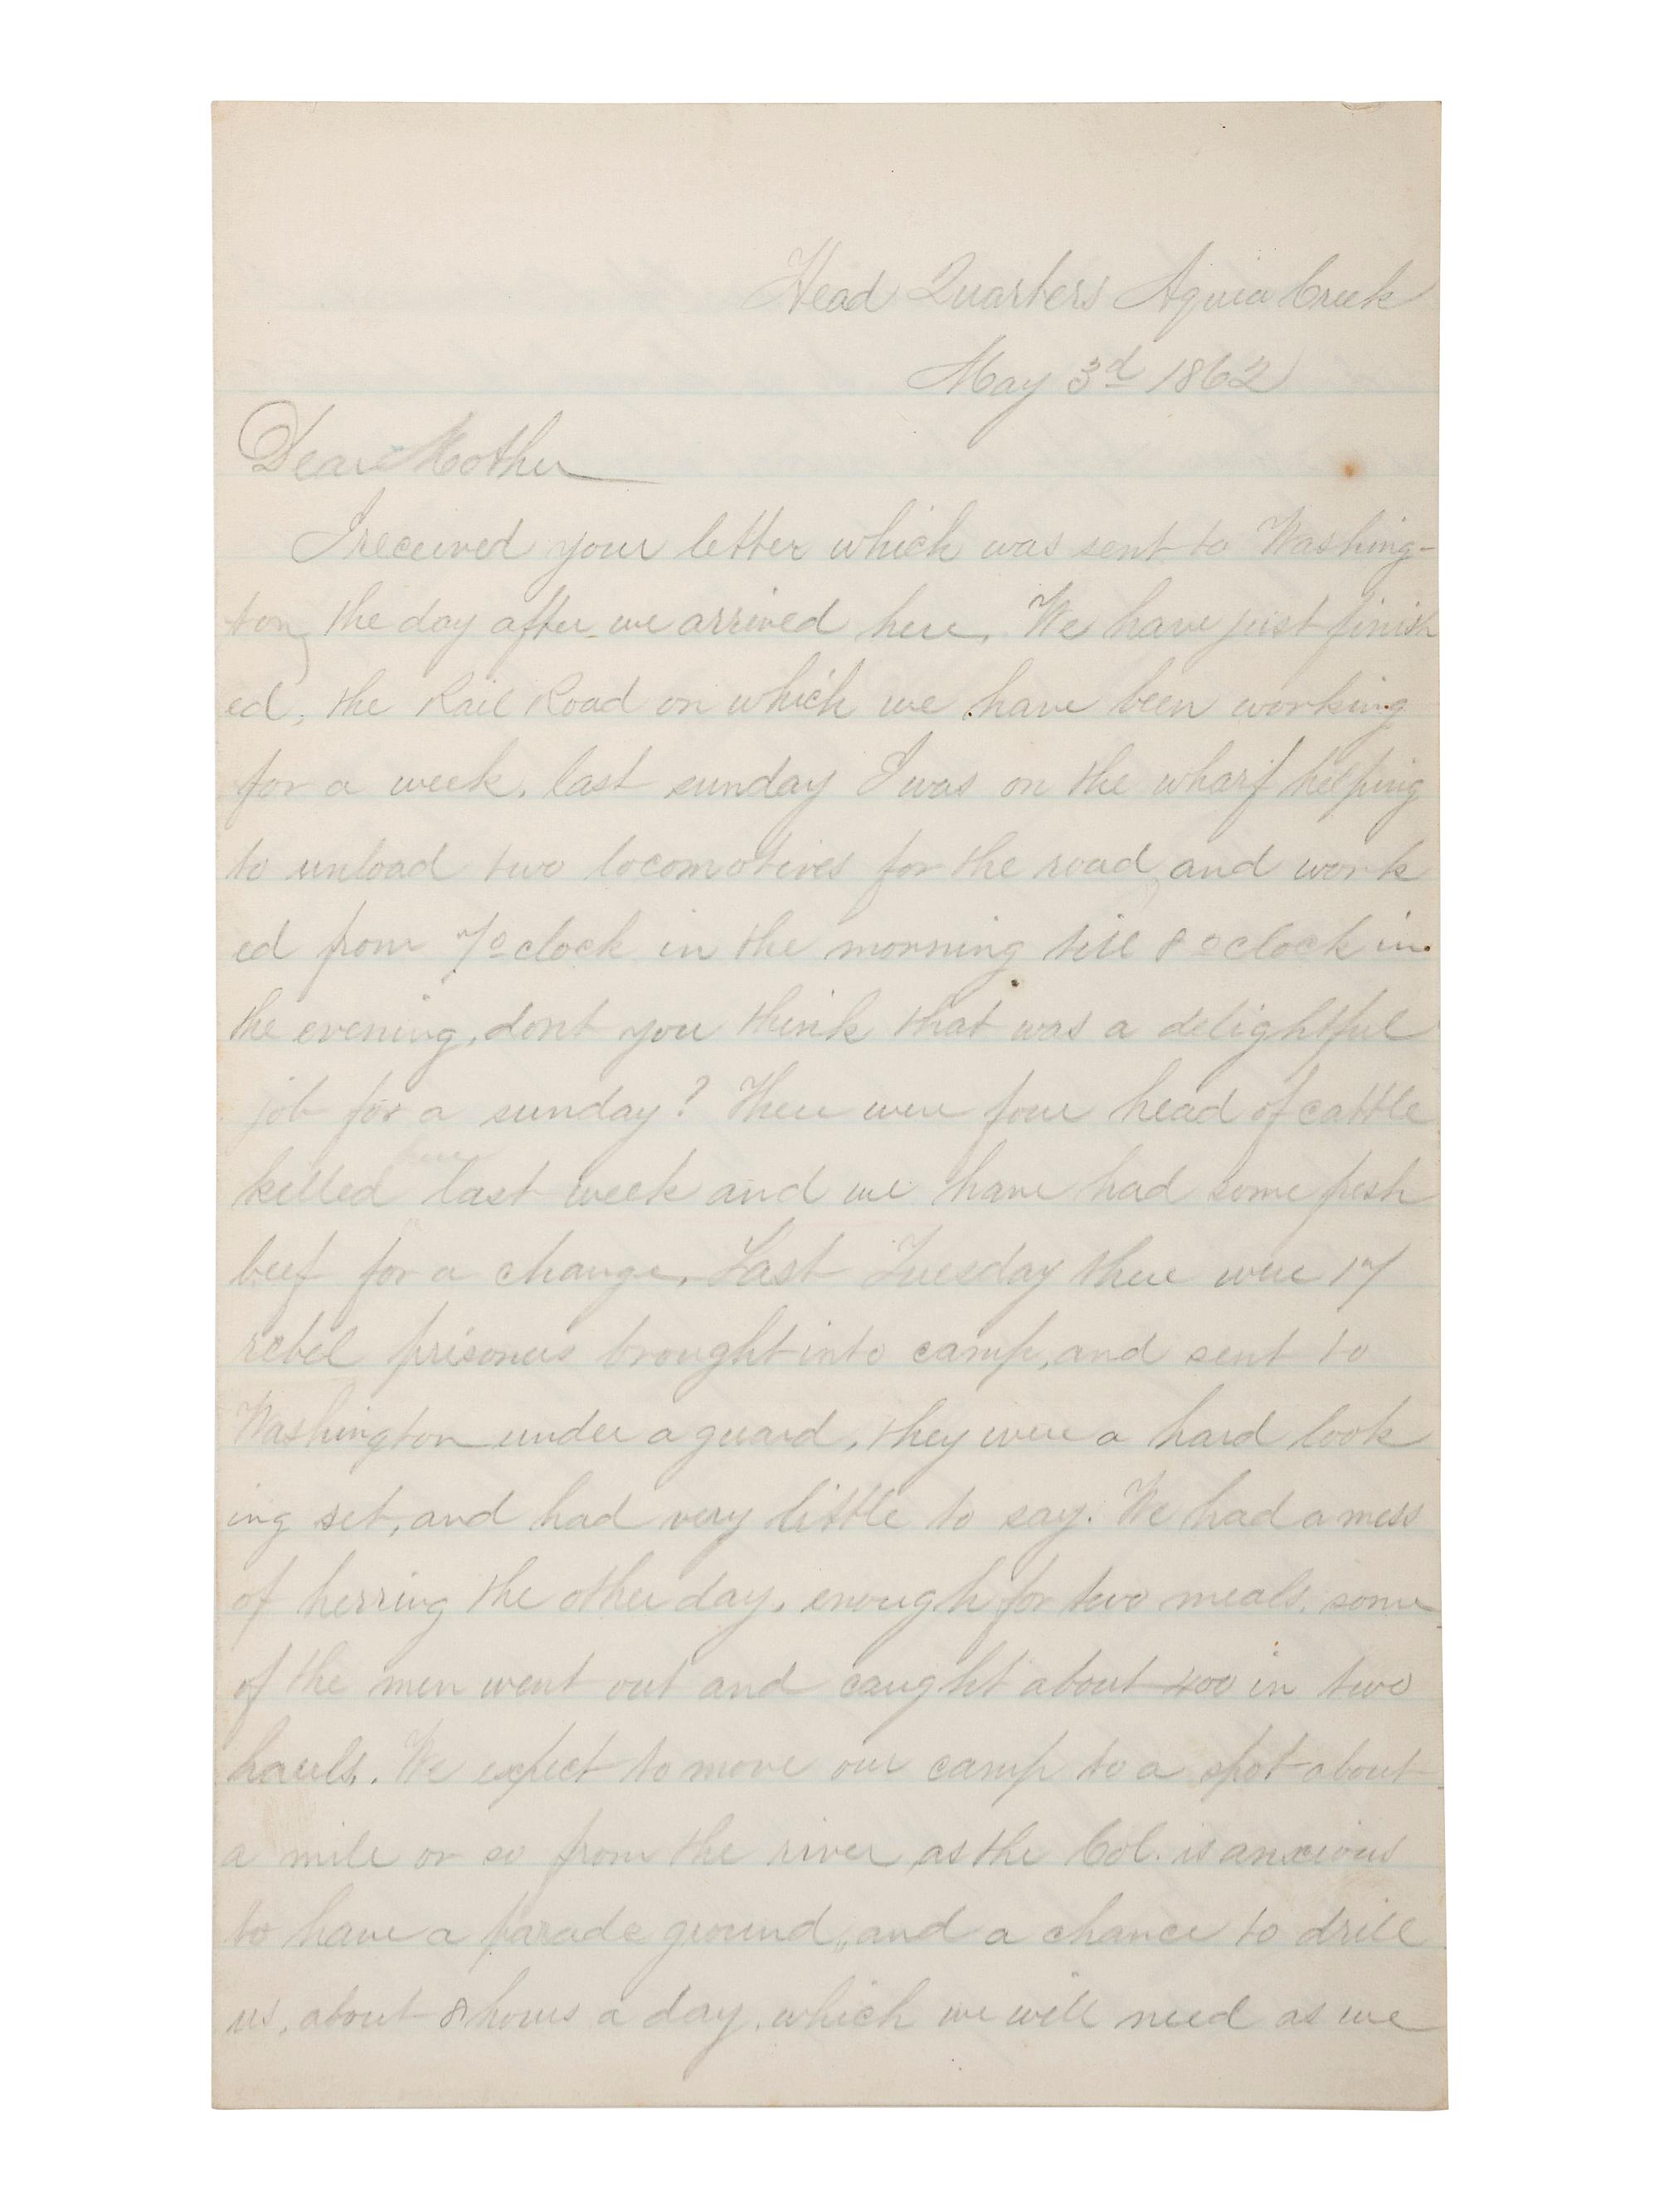 Head Quarters Aquia Creek
May 3d 1862
Dear Mother
I received your letter which was sent to Washing-
ton, the day after we arrived here, We have just finish
ed, the Rail Road on which we have been working
for a week. last sunday I was on the wharf helping
to unload two locomotives for the road, and work
ed from 7 oclock in the morning till 8 oclock in
the evening, dont you think that was a delightful
job for a sunday? There were four head of cattle
here
killed last week and we have had some fresh
beef for a change. Last Tuesday there were 17
rebel prisoners brought into camp, and sent to
Washington under a guard, they were a hard look
ing set, and had very little to say. We had a mess
of herring the other day, enough for two meals. some
of the men went out and caught about 400 in two
hauls. We expect to move our camp to a spot about
a mile or so from the river, as the Col. is anxious
to have a parade ground, and a chance to drill
us, about 8 hours a day, which we will need as we